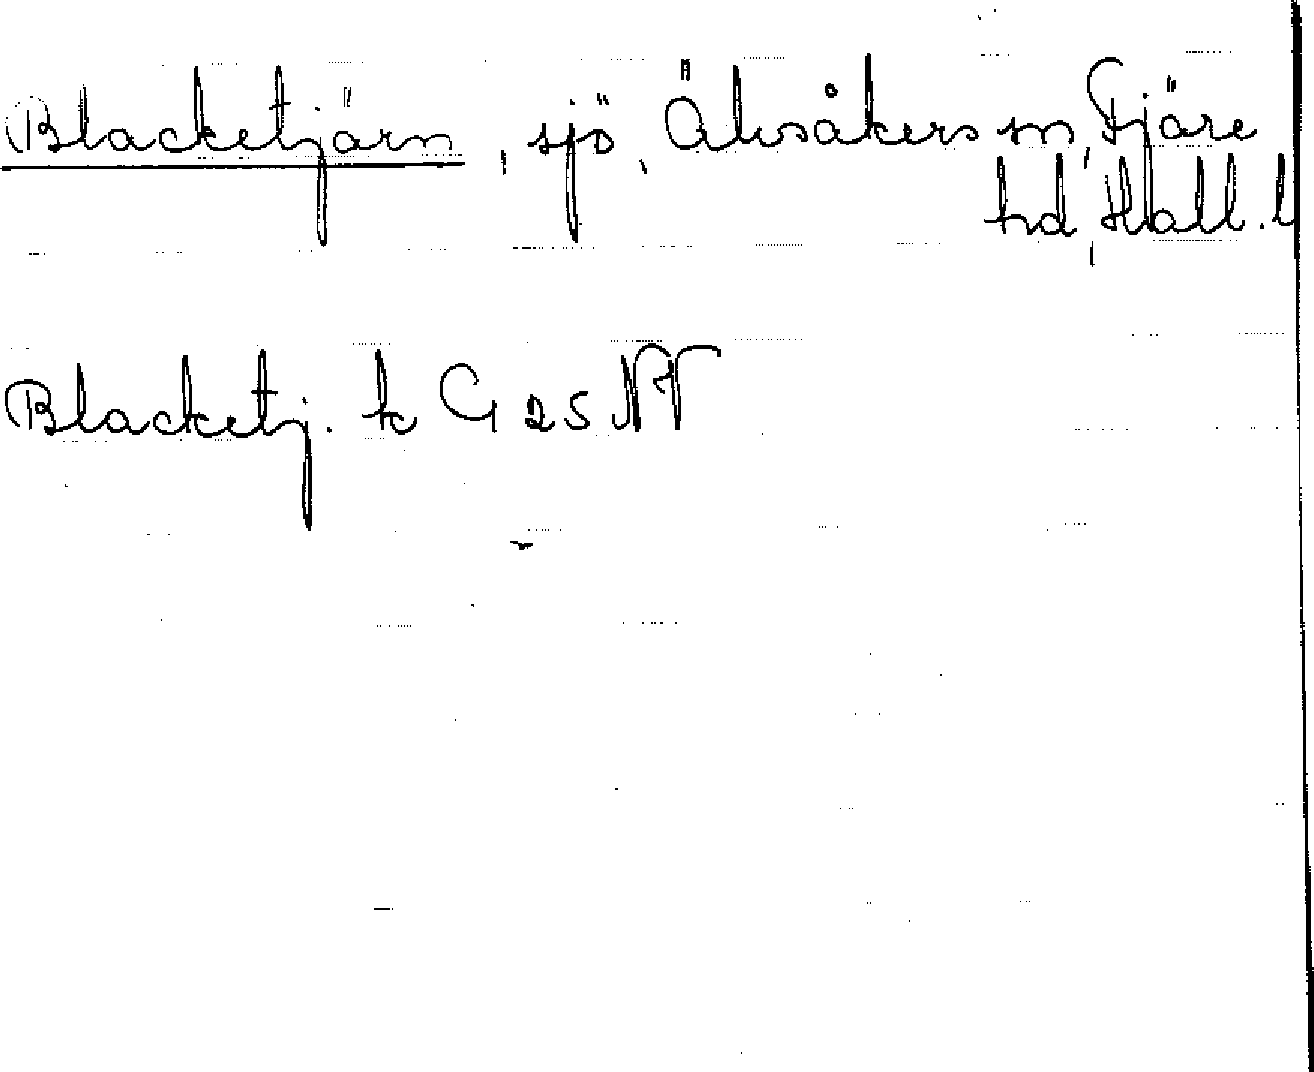 Blacketjärn, sjö, Älvsåkers sn, Fjäre
hd, Hall. l
Blacketj. k G 25 NV